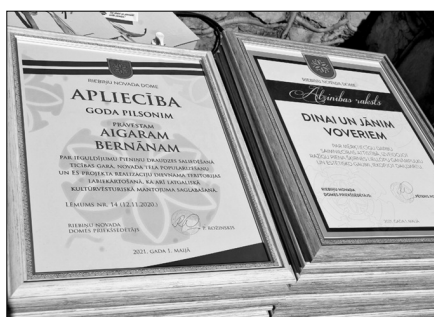 RIEBIŅU NOVADA DOME
APLIECĪBA
GODA PILSONIM
PRĀVESTAM
AIGARAM
BERNĀNAM
PAR IEGULDĪJUMU PIENIŅU DRAUDZES SALIEDĒŠANĀ
TICĪBAS GARĀ, NOVADA TĒLA POPULARIZĒŠANU
UN ES PROJEKTA REALIZĀCIJU DIEVNAMA TERITORIJAS
LABIEKĀRTOŠANĀ, KĀ ARĪ LATGALISKĀ
KULTŪRVĒSTURISKĀ MANTOJUMA SAGLABĀŠANĀ.
LĒMUMS NR. 14 (12.11.2020.)
RIEBIŅU NOVADA
DOMES PRIEKŠSĒDĒTĀJS
P. ROŽINSKIS
2021. GADA 1. MAIJĀ
RIEBIŅU NOVADA DOME
Atzinības raksts
DINAI UN JĀNIM
VOVERIEM
RIEBIŅU NOVADA
DOMES PRIEKŠSĒDĒTĀJS
2021. GADA 1. MAIJĀ